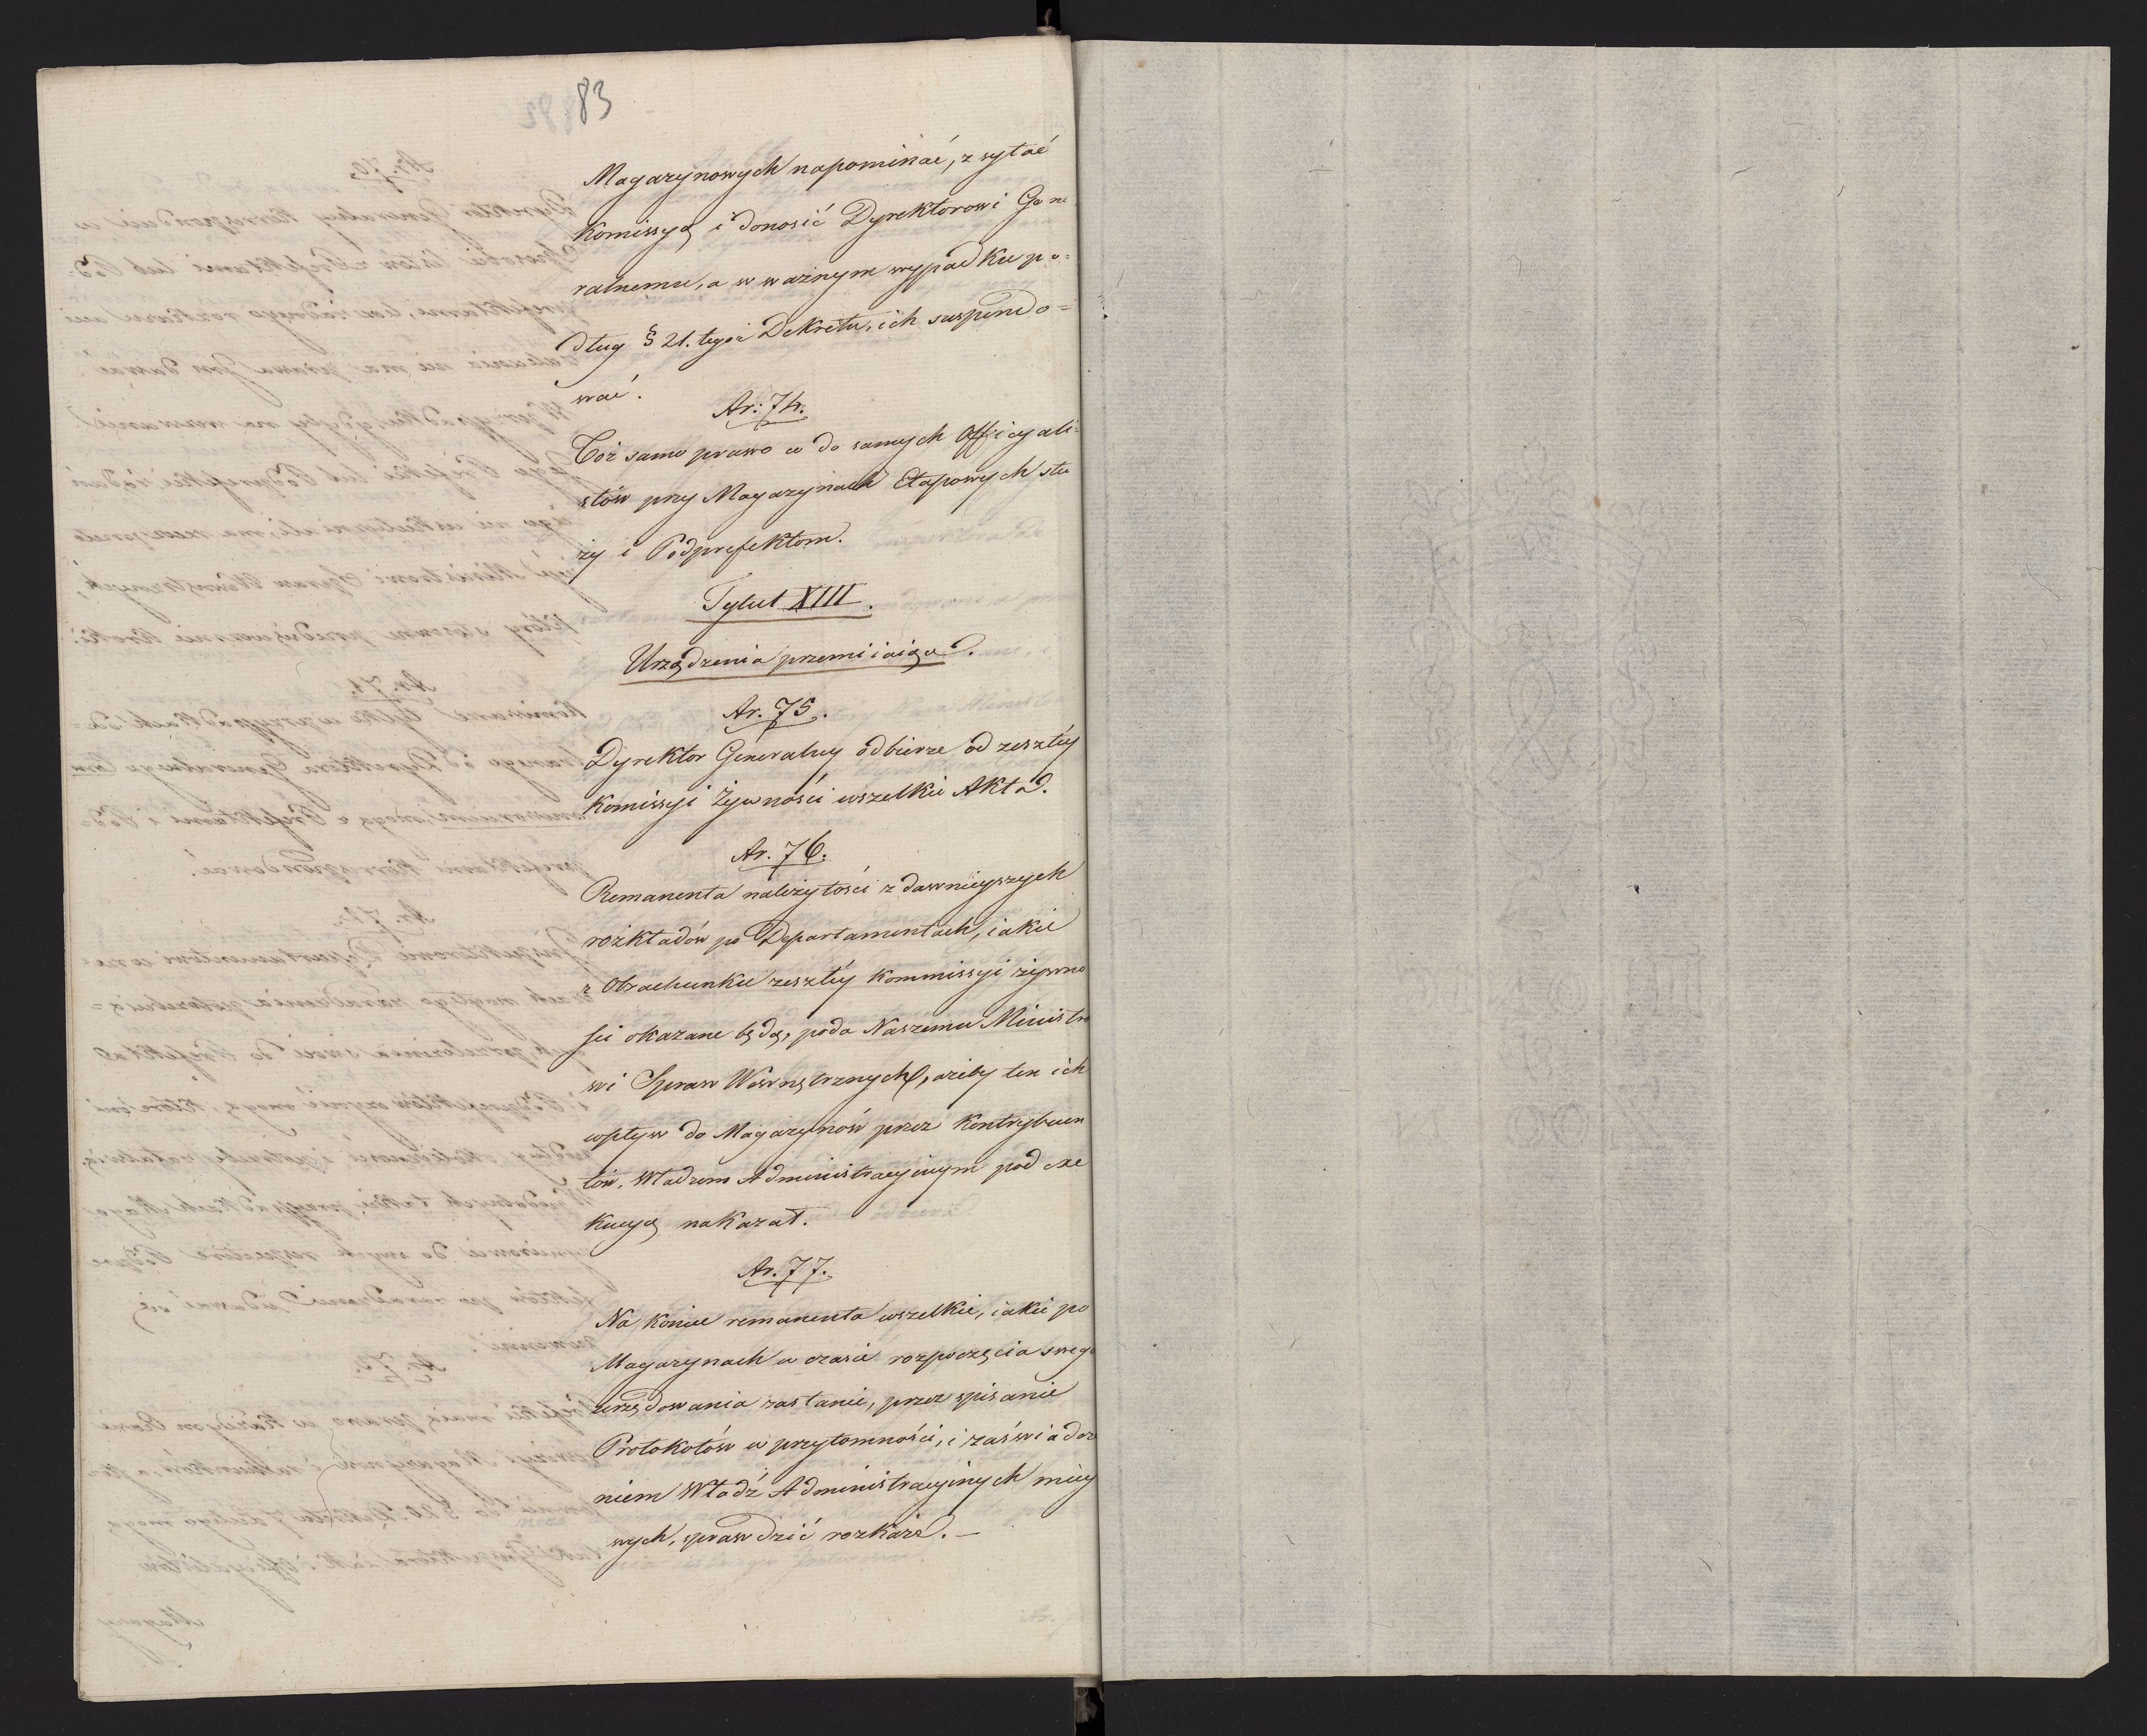 83
Magazynowych napominać, zsyłać
Komissyą i donosić Dyrektorowi Gene
ralnemu, a w ważnym wypadku po=
dług § 21. tegoż Dekretu, ich suspendo=
wać.
Ar: 74.
Toż samo prawo co do samych Officyali=
stów przy Magazynach Etapowych słu
ży i Podprefektom.
Tytuł XIII.
Urządzenia przemiiaiące.
Ar. 75.
Dyrektor Generalny odbierze od zeszłey
Komissyi Żywności wszelkie Akta.
Ar. 76.
Remanenta należytości z dawnieyszych
rozkładów po Departamentach, iakie
z Obrachunku zeszłéy Kommissyi żywno
ści okazane będą, poda Naszemu Ministro
wi Spraw Wewnętrznych, ażeby ten ich
wpływ do Magazynów przez Kontrybuen
tów, Władzom Administracyinym pod exe
kucyą nakazał.
Ar. 77.
Na koniec remanenta wszelkie, iakie po
Magazynach w czasie rozpoczęcia swego
urzędowania zastanie, przez spisanie
Protokołów w przytomności, i zaświadcze
niem Władz Administracyinych miey
wych, sprawdzić rozkaże. —